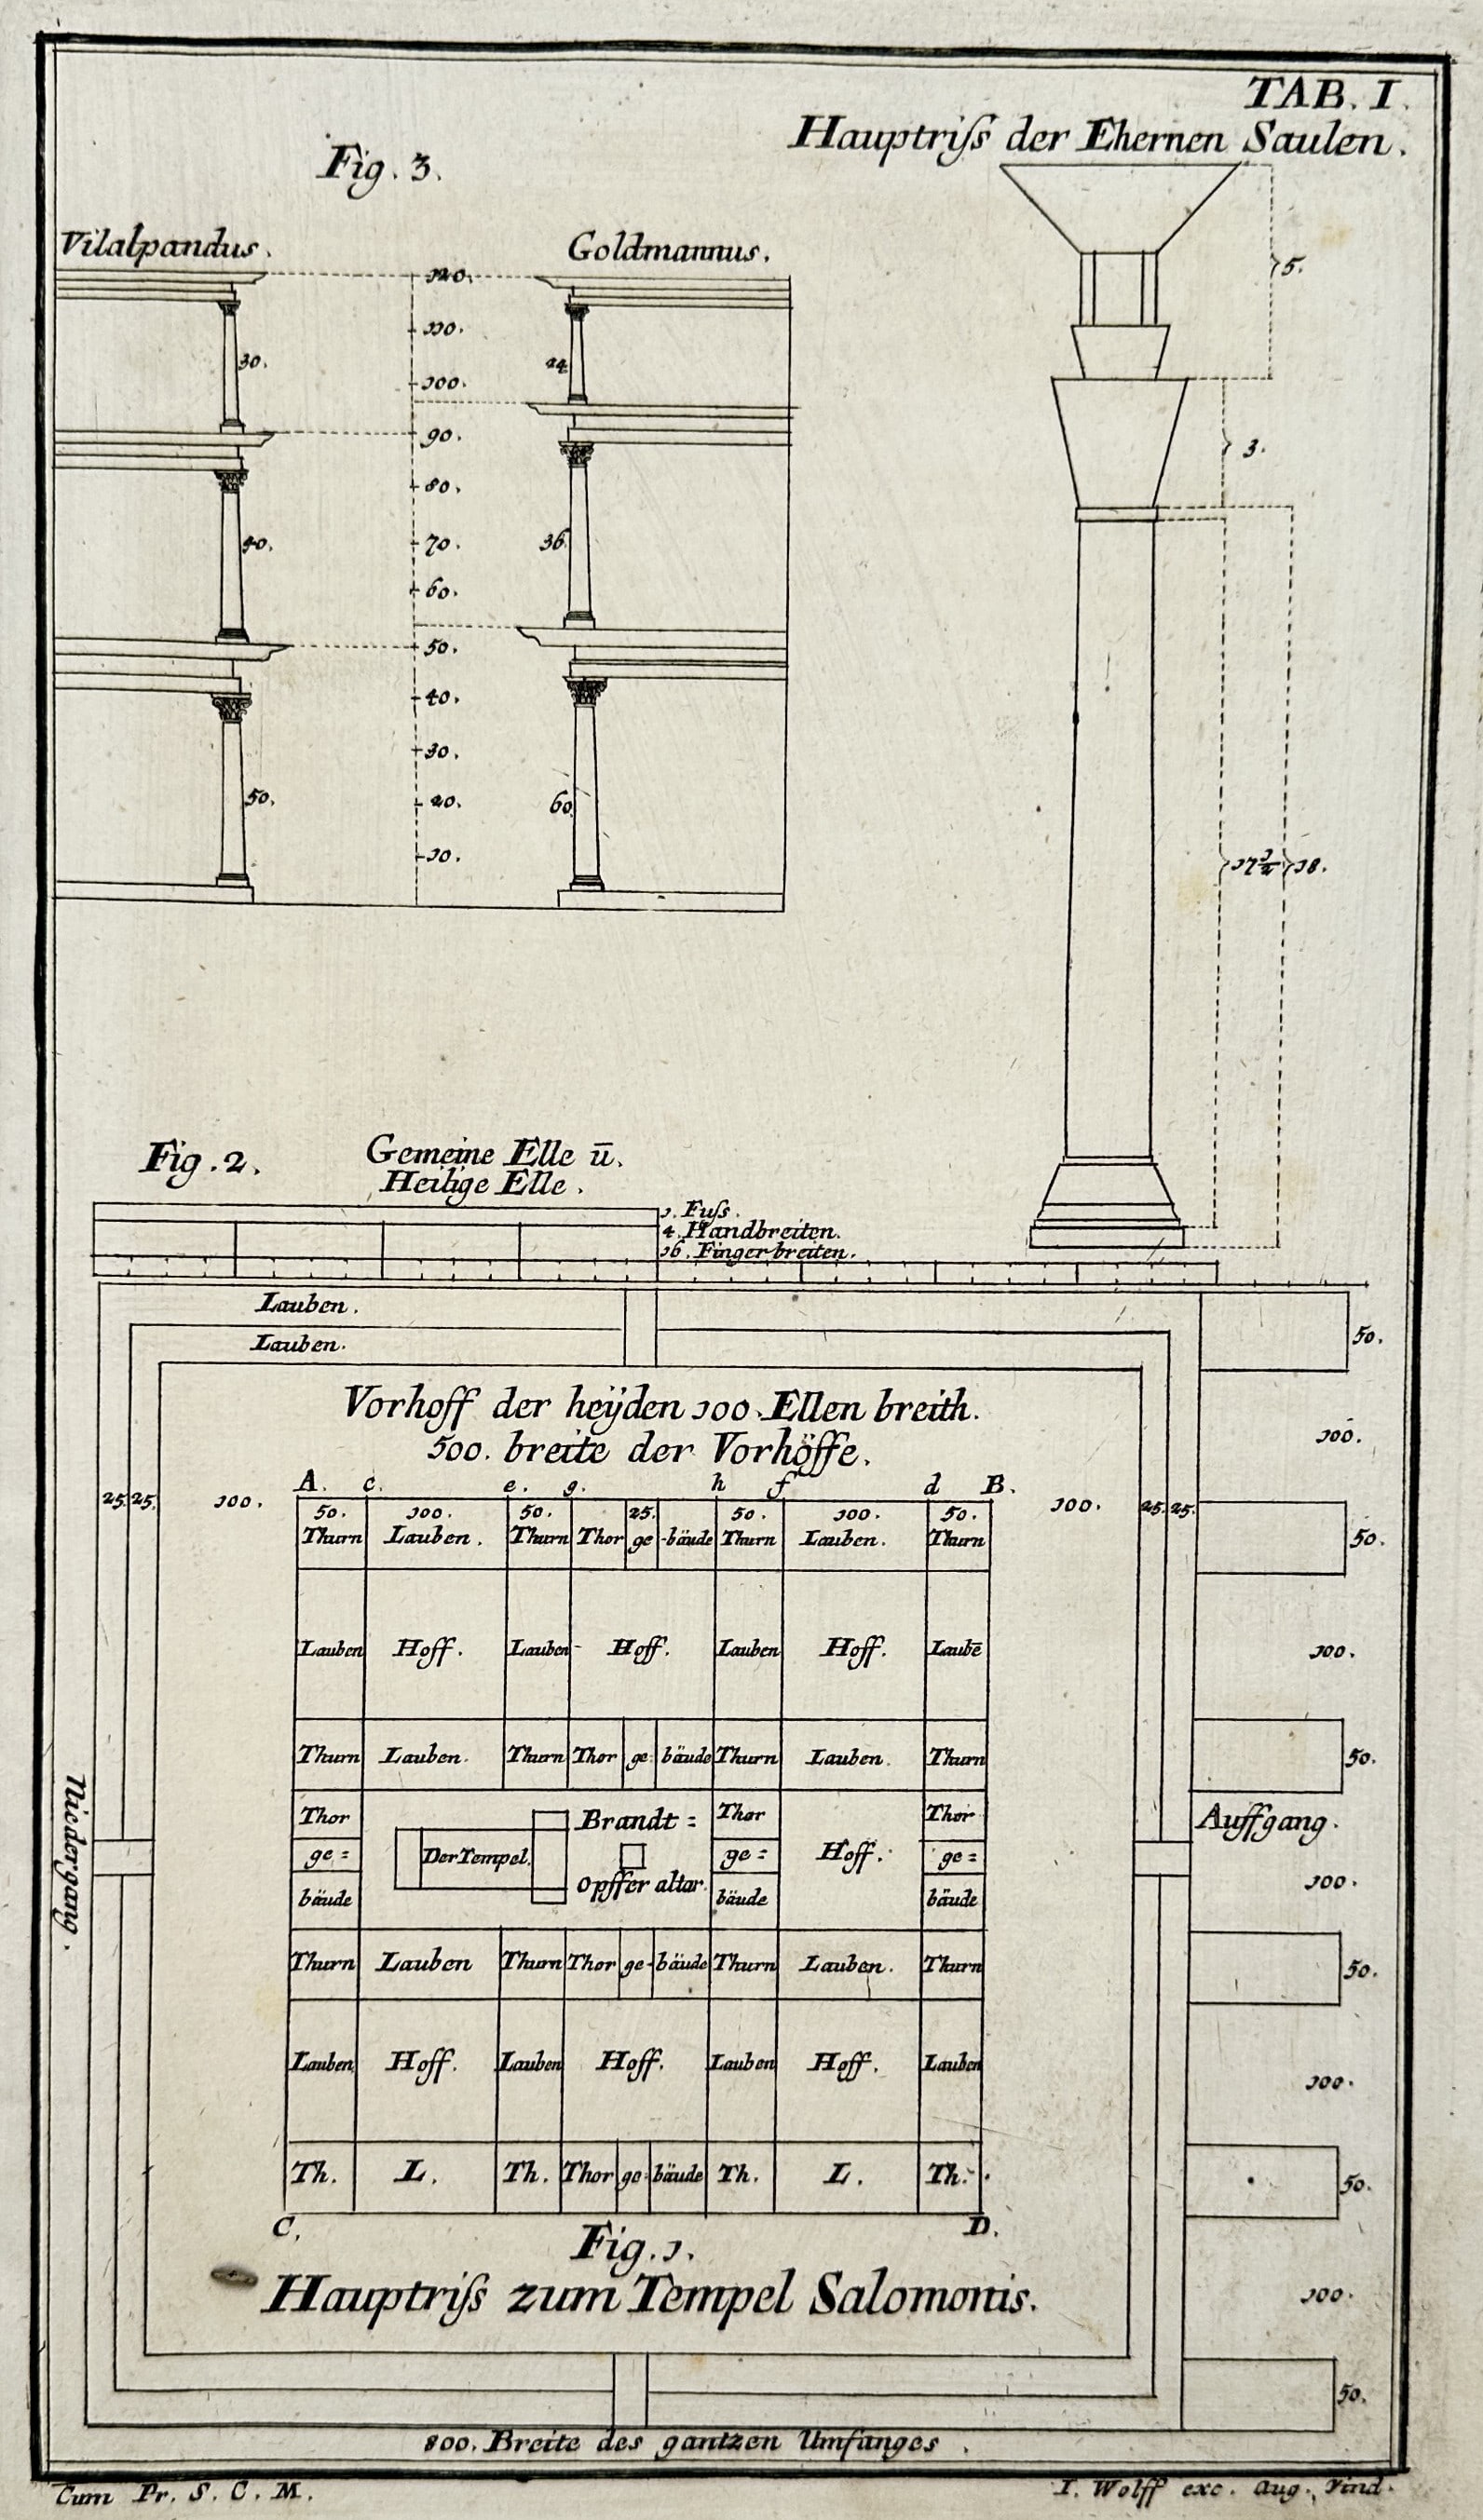 TAB. I.
Hauptriſs der Ehernen Saulen.
5.
3.
17½
18.
Fig. 3.
Vilalpandus.
Goldmannus.
120.
110.
100.
90.
80.
70.
60.
50.
40.
30.
20.
10.
30.
40.
50.
24
36.
60
Fig. 2.
Gemeine Elle ū.
Heilige Elle.
1. Fuſs.
4. Handbreiten.
16. Fingerbreiten.
Lauben.
Lauben.
Vorhoff der heÿden 100. Ellen breith.
500. breite der Vorhöffe.
A. c. e. g. h f d B.
25. 25. 100. 100. 25. 25.
50. 100. 50. 25. 50. 100. 50.
Thurn Lauben. Thurn Thor ge -bäude Thurn Lauben. Thurn
Lauben Hoff. Lauben- Hoff. Lauben Hoff. Laubē
Thurn Lauben. Thurn Thor ge bäude Thurn Lauben. Thurn
Thor Brandt = Thor Thor
ge = Der Tempel. ge = Hoff. ge =
bäude opffer altar. bäude bäude
Thurn Lauben Thurn Thor ge- bäude Thurn Lauben. Thurn
Lauben Hoff. Lauben Hoff. Lauben Hoff. Lauben
Th. L. Th. Thor ge- bäude Th. L. Th.
C. D.
Fig. 1.
Hauptriſs zum Tempel Salomonis.
800. Breite des gantzen Umfanges.
Niedergang.
50.
100.
50.
100.
50.
Auffgang.
100.
50.
100.
50.
100.
50.
Cum Pr. S. C. M.
I. Wolff exc. Aug. Vind.